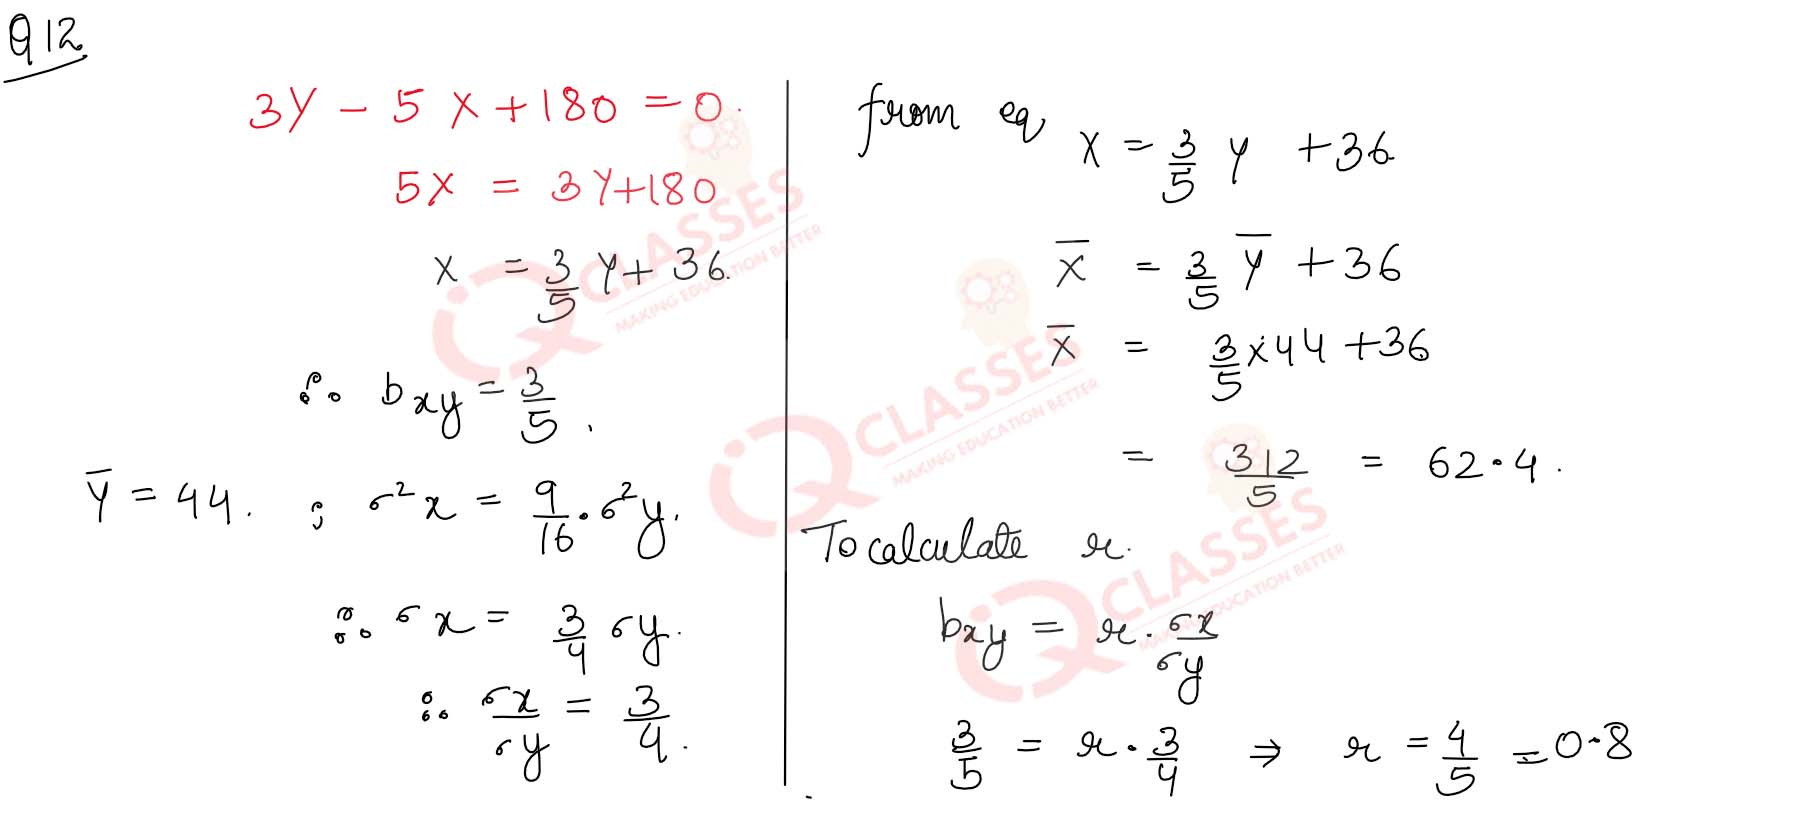 Q12
3Y - 5X + 180 = 0.
5X = 3Y + 180
X = 3/5 Y + 36.
∴ bxy = 3/5.
Y̅ = 44. ; σ²x = 9/16 · σ²y.
∴ σx = 3/4 σy.
∴ σx/σy = 3/4.
from eq X = 3/5 Y + 36
X̅ = 3/5 Y̅ + 36
X̅ = 3/5 × 44 + 36
= 312/5 = 62.4.
To calculate r.
bxy = r · σx/σy
3/5 = r · 3/4 ⇒ r = 4/5 = 0.8
iQ CLASSES
MAKING EDUCATION BETTER
iQ CLASSES
MAKING EDUCATION BETTER
iQ CLASSES
MAKING EDUCATION BETTER